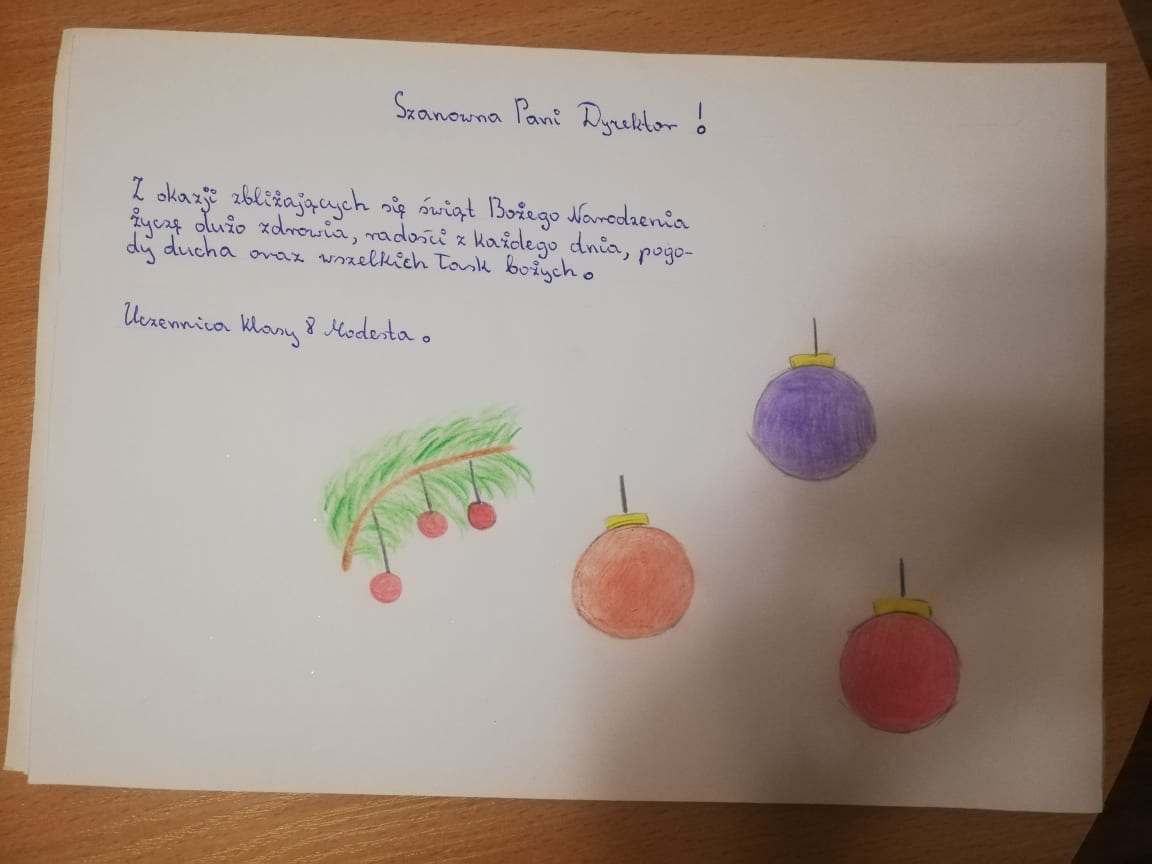 Szanowna Pani Dyrektor!
Z okazji zbliżających się świąt Bożego Narodzenia
życzę dużo zdrowia, radości z każdego dnia, pogo-
dy ducha oraz wszelkich łask bożych.
Uczennica klasy 8 Modesta.